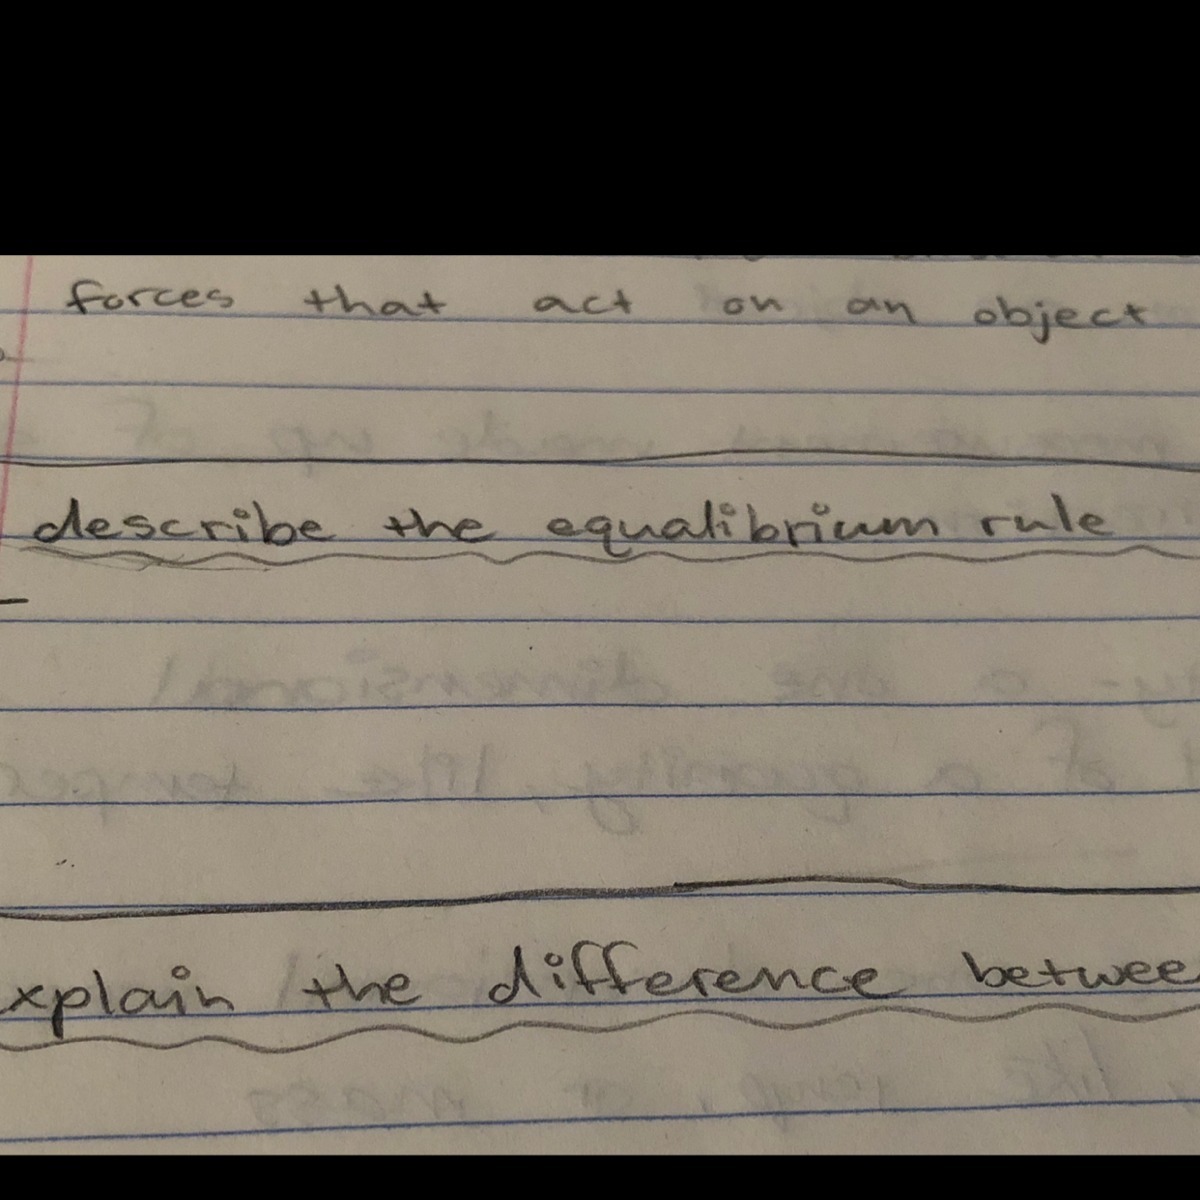 forces that act on an object
describe the equalibrium rule
xplain the difference betwee